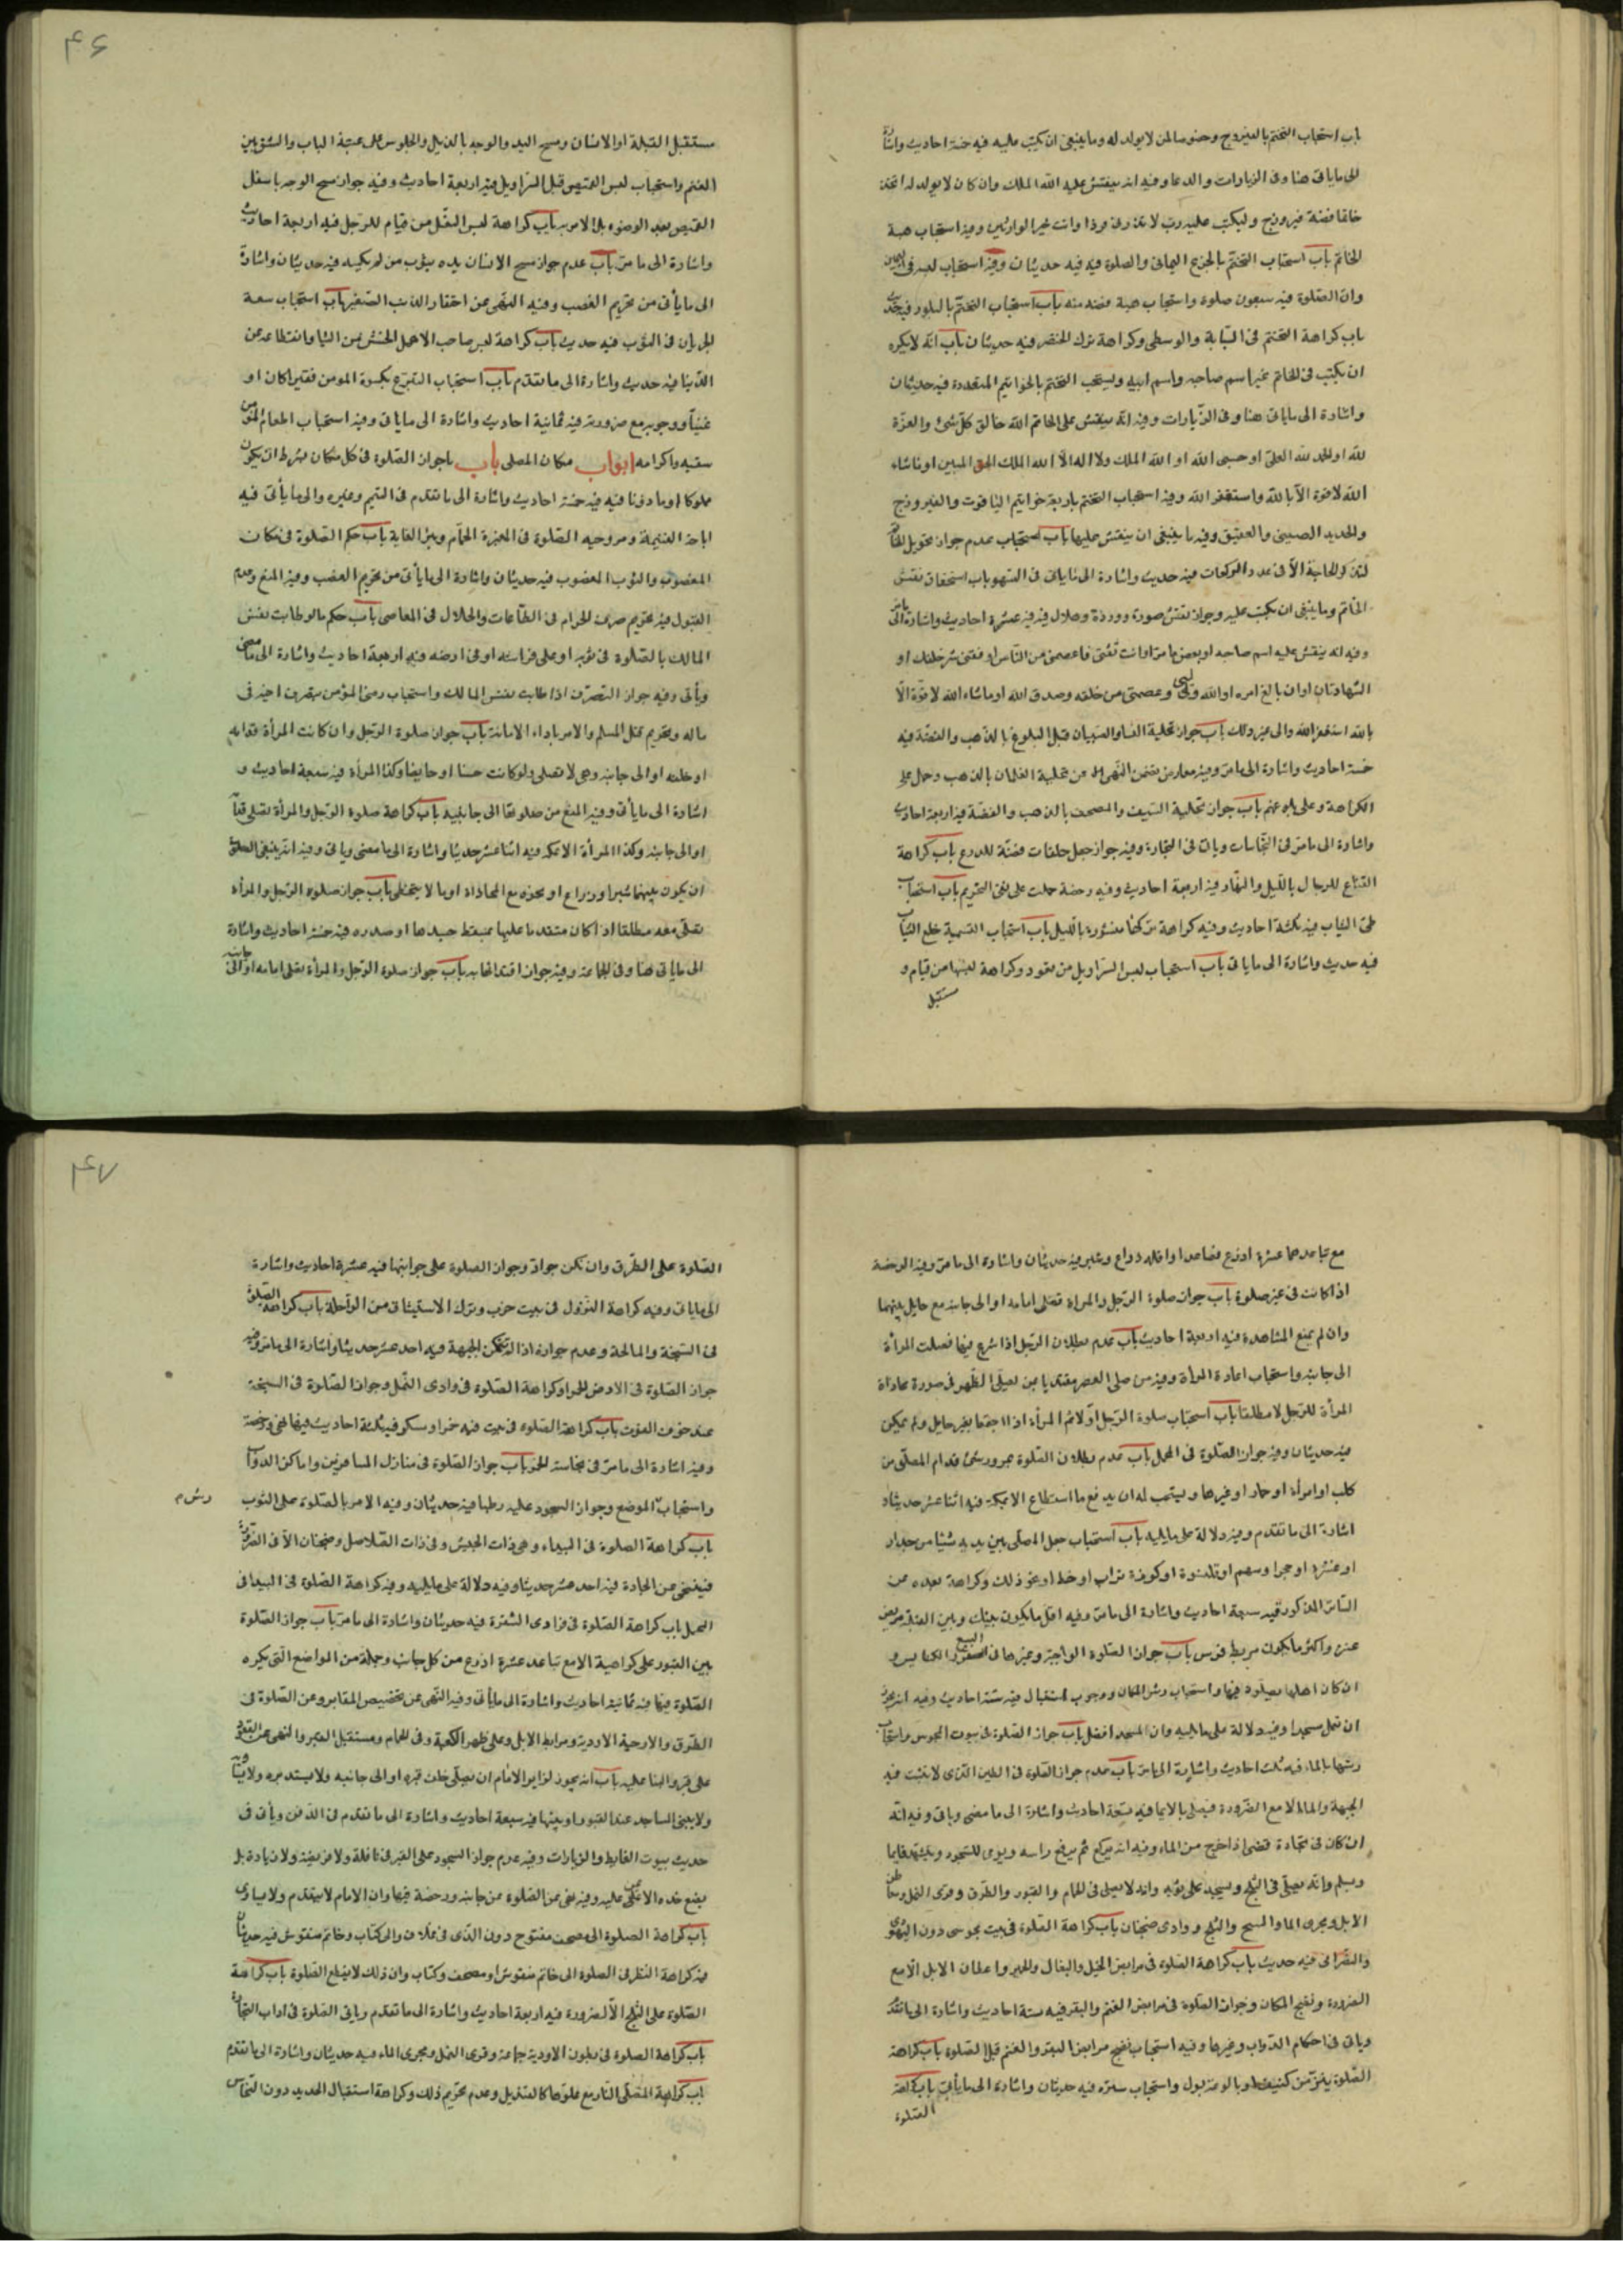 باب استحباب التختم بالفيروزج وخصوصا لمن لا يولد له وما ينبغى ان يكتب عليه فيه خمسة احاديث واشارة
الى ما ياتى هنا وفى الزيارات والدعا وفيه انه ينقش عليه الله الملك وان كان لا يولد له اتخذ
خاتما فصه فيروزج وليكتب عليه رب لا تذرنى فردا وانت خير الوارثين وفيه استحباب هبة
الخاتم باب استحباب التختم بالجزع اليمانى والصلوة فيه فيه حديثان وفيه استحباب لبسه فى اليمين
وان الصلوة فيه سبعون صلوة واستحباب هبة فصه منه باب استحباب التختم بالبلور فيه حديث
باب كراهة التختم فى السبابة والوسطى وكراهة ترك الخنصر فيه حديثان باب انه لا يكره
ان يكتب فى الخاتم غير اسم صاحبه واسم ابيه ويستحب التختم بالخواتيم المتعددة فيه حديثان
واشارة الى ما ياتى هنا وفى الزيارات وفيه انه ينقش على الخاتم الله خالق كل شئ والعزة
لله او الحمد لله العلى او حسبى الله او الله الملك ولا اله الا الله الملك الحق المبين او ما شاء
الله لا قوة الا بالله واستغفر الله وفيه استحباب التختم باربعة خواتيم الياقوت والفيروزج
والحديد الصينى والعقيق وفيه ما ينبغى ان ينقش عليها باب استحباب عدم جواز تحويل الخاتم
لتذكر الحاجة الا فى عدد الركعات فيه حديث واشارة الى ما ياتى فى السهو باب استحقاق نقش
الخاتم وما ينبغى ان يكتب عليه وجواز نقش صورة وردة وهلال فيه فيه عشرة احاديث واشارة الى ما مر
وفيه انه ينقش عليه اسم صاحبه او بعض ما مر او انت ثقتى فاعصمنى من الناس او قنى شر خلقك او
الشهادتان او ان بالغ امره او الله وليى وعصمتى من خلقه وصدق الله او ما شاء الله لا قوة الا
بالله استغفر الله والى غير ذلك باب جواز تحلية النساء والصبيان قبل البلوغ بالذهب والفضة فيه
خمسة احاديث واشارة الى ما مر وفيه معارض تضمن النهى عن تحلية الغلمان بالذهب وحمل على
الكراهة وعلى بلوغهم باب جواز تحلية السيف والمصحف بالذهب والفضة فيه اربعة احاديث
واشارة الى ما مر فى النجاسات وياتى فى التجارة وفيه جواز جعل حلقات فضة للدرع باب كراهة
القناع للرجال بالليل والنهار فيه اربعة احاديث وفيه رخصة حملت على نفى التحريم باب استحباب
طى الثياب فيه ثلثة احاديث وفيه كراهة تركها منشورة بالليل باب استحباب التسمية خلع الثياب
فيه حديث واشارة الى ما ياتى باب استحباب لبس السراويل من قعود وكراهة لبسها من قيام و
مستقبل
۴۶
مستقبل القبلة او الانسان ومسح اليد والوجه بالذيل والجلوس على عتبة الباب والشق بين
الغنم واستحباب لبس القميص قبل السراويل فيه اربعة احاديث وفيه جواز مسح الوجه باسفل
القميص بعد الوضوء بل الامر به باب كراهة لبس النعل من قيام للرجل فيه اربعة احاديث
واشارة الى ما مر باب عدم جواز مسح الانسان يده بثوب من لم يكسه فيه حديثان واشارة
الى ما ياتى من تحريم الغصب وفيه النهى عن احقار الذنب الصغير باب استحباب سعة
الجربان فى الثوب فيه حديث باب كراهة لبس صاحب الاهل الخشن من الثيا وانقطاعه عن
الدنيا فيه حديث واشارة الى ما تقدم باب استحباب التبرع بكسوة المومن فقيرا كان او
غنيا ووجوبه مع ضرورته فيه ثمانية احاديث واشارة الى ما ياتى وفيه استحباب اطعام المؤمن
سقيه واكرامه ابواب مكان المصلى باب ما جواز الصلوة فى كل مكان بشرط ان يكون
مملوكا او ماذونا فيه فيه خمسة احاديث واشارة الى ما تقدم فى التيمم وغيره والى ما ياتى فيه
اباحة الغنيمة ومر وفيه الصلوة فى المقبرة الحمام وبئر الغاية باب حكم الصلوة فى مكان
المغصوب والثوب المغصوب فيه حديثان واشارة الى ما ياتى من تحريم الغصب وفيه المنع وعدم
القبول فيه تحريم صرف الحرام فى الطاعات والحلال فى المعاصى باب حكم ما لو طابت نفس
المالك بالصلوة فى ثوبه او على فراشه او فى ارضه فيه اربعة احاديث واشارة الى ما مضى
وياتى وفيه جواز التصرف اذا طابت نفس المالك واستحباب رضى المؤمن بتصرف اخيه فى
ماله وتحريم قتل المسلم والامر باداء الامانة باب جواز صلوة الرجل وان كانت المرأة قدامه
او خلفه او الى جانبه وهى لا تصلى ولو كانت جنبا او حايضا وكذا المرأة فيه سبعة احاديث و
اشارة الى ما ياتى وفيه المنع من صلوتها الى جانبه باب كراهة صلوة الرجل والمرأة تصلى قدامه
او الى جانبه وكذا المرأة الا بمكة فيه اثنا عشر حديثا واشارة الى ما مضى وياتى وفيه انه ينبغى الصلوة
ان يكون بينهما شبر او ذراع او نحوه مع المحاذاة او ما لا يتخطى باب جواز صلوة الرجل والمرأة
تصلى معه مطلقا اذا كان متقدما عليها بمسقط جسدها او صدره فيه خمسة احاديث واشارة
الى ما ياتى هنا وفى الجماعة وفيه جواز اقتدائها به باب جواز صلوة الرجل والمرأة تصلى امامه او الى جانبه
مع تباعدهما عشرة اذرع فصاعدا او اقله ذراع وشبر وفيه حديثان واشارة الى ما مر وفيه الرخصة
اذا كانت فى غير صلوة باب جواز صلوة الرجل والمراة تصلى امامه او الى جانبه مع حايل بينهما
وان لم يمنع المشاهدة فيه اربعة احاديث باب عدم بطلان الرجل اذا شرع فيها فصلت المرأة
الى جانبه واستحباب اعادة المراة وفيه من صلى العصر مقتديا بمن يصلى الظهر فى صورة محاذاة
المرأة للرجل لا مطلقا باب استحباب صلوة الرجل اولا ثم المرأة اذا اجتمعا بغير حايل ولم يمكن
فيه حديثان وفيه جواز الصلوة فى المحمل باب عدم بطلان الصلوة بمرور شئ قدام المصلى من
كلب او امرأة او حمار او غيرها ويستحب له ان يدفع ما استطاع الا بمكة فيه اثنا عشر حديثا و
اشارة الى ما تقدم وفيه دلالة على ما يليه باب استحباب جعل المصلى بين يديه شيئا من جدار
او عنزة او حجر او سهم او قلنسوة او كومة تراب او خط او نحو ذلك وكراهة بعده عن
الساتر المذكور فيه سبعة احاديث واشارة الى ما مر وفيه اقل ما يكون بينك وبين القبلة مربض
عنز واكثر ما يكون مربط فرس باب جواز الصلوة الواجبة وغيرها فى البيع والكنايس و
ان كان اهلها يصلون فيها واستحباب رش المكان ووجوب استقبال فيه ستة احاديث وفيه انه يجوز
ان تعمل مسجدا وفيه دلالة على ما يليه وان المسجد افضل باب جواز الصلوة فى بيوت المجوس واستحباب
رشها بالماء فيه ثلث احاديث واشارة الى ما مر باب عدم جواز الصلوة فى الطين الذى لا تثبت فيه
الجبهة والماء الا مع الضرورة فيصلى بالايما فيه تسعة احاديث واشارة الى ما مضى وياتى وفيه انه
ان كان فى تجارة قضى اذا خرج من الماء وفيه انه يركع ثم يرفع راسه ويومى للسجود ويتشهد قايما
ويسلم وانه يصلى فى الثلج ويسجد على ثوبه وانه لا يصلى فى الحمام والقبور والطرق وقرى النمل ومعاطن
الابل ومجرى الما والسبخ والثلج ووادى ضجنان باب كراهة الصلوة فى بيت مجوسى دون اليهودى
والنصرانى فيه حديث باب كراهة الصلوة فى مرابض الخيل والبغال والحمير واعطان الابل الا مع
الضرورة ونضح المكان وجواز الصلوة فى مرابض الغنم والبقر فيه ستة احاديث واشارة الى ما تقدم
وياتى فى احكام الدواب وغيرها وفيه استحباب نضح مرابض البقر والغنم قبل الصلوة باب كراهة
الصلوة ينز من كنيف او بالوعة بول واستحباب ستره فيه حديثان واشارة الى ما ياتى باب كراهة
الصلوة
۴۷
الصلوة على الطرق وان لم تكن جواد وجواز الصلوة على جوانبها فيه عشرة احاديث واشارة
الى ما ياتى وفيه كراهة النزول فى بيت خرب وترك الاستيثاق من الراحلة باب كراهة الصلوة
فى السبخة والمالحة وعدم جوازه اذا لم تتمكن الجبهة فيه احد عشر حديثا واشارة الى ما مر وفيه
جواز الصلوة فى الارض الحمرا وكراهة الصلوة فى وادى النمل وجواز الصلوة فى السبخة
عند خوف الفوت باب كراهة الصلوة فى بيت فيه خمر او مسكر فيه ثلثة احاديث فيها نفى ورخصة
وفيه اشارة الى ما مر فى نجاسة الخمر باب جواز الصلوة فى منازل المسافرين واماكن الدواب
رش م
واستحباب الموضع وجواز السجود عليه رطبا فيه حديثان وفيه الامر بالصلوة على الثوب
باب كراهة الصلوة فى البيداء وهى ذات الجيش وفى ذات الصلاصل وضجنان الا فى الضرورة
فيتنحى عن الجادة فيه احد عشر حديثا وفيه دلالة على ما يليه وفيه كراهة الصلوة فى البيدا فى
المحمل باب كراهة الصلوة فى وادى الشقرة فيه حديثان واشارة الى ما مر باب جواز الصلوة
بين القبور على كراهية الا مع تباعد عشرة اذرع من كل جانب وجملة من المواضع التى يكره
الصلوة فيها فيه ثمانية احاديث واشارة الى ما ياتى وفيه النهى عن تجصيص المقابر وعن الصلوة فى
الطرق والارحية الاودية ومرابط الابل وعلى ظهر الكعبة وفى الحمام ومستقبل القبر والنهى عن القعود
على قبر والبنا عليه باب انه يجوز لزاير الامام ان يصلى خلف قبره او الى جانبه ولا يستدبره ولا يساويه
ولا يبنى المساجد عند القبور او بينها فيه سبعة احاديث واشارة الى ما تقدم فى الدفن وياتى فى
حديث بيوت الغايط والزيارات وفيه عدم جواز السجود على القبر فى نافلة ولا فريضة ولا زيادة بل
يضع خده الايمن عليه وفيه نهى عن الصلوة عن جانبه ورخصة فيها وان الامام لا يتقدم ولا يساوى
باب كراهة الصلوة الى مصحف مفتوح دون الذى فى غلاف والى كتاب وخاتم منقوش فيه حديثان
فيه كراهة النظر فى الصلوة الى خاتم منقوش او مصحف وكتاب وان ذلك لا يقطع الصلوة باب كراهة
الصلوة على الثلج الا لضرورة فيه اربعة احاديث واشارة الى ما تقدم وياتى الصلوة فى اداب التجارة
باب كراهة الصلوة فى بطون الاودية جماعة وقرى النمل ومجرى الماء فيه حديثان واشارة الى ما تقدم
باب كراهة المصلى النار مع علوها كالقنديل وعدم تحريم ذلك وكراهة استقبال الحديد دون النحاس